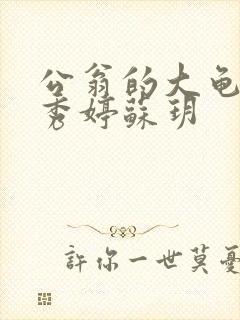 公翁的大龟
秀婷蘇玥
許你一世莫憂